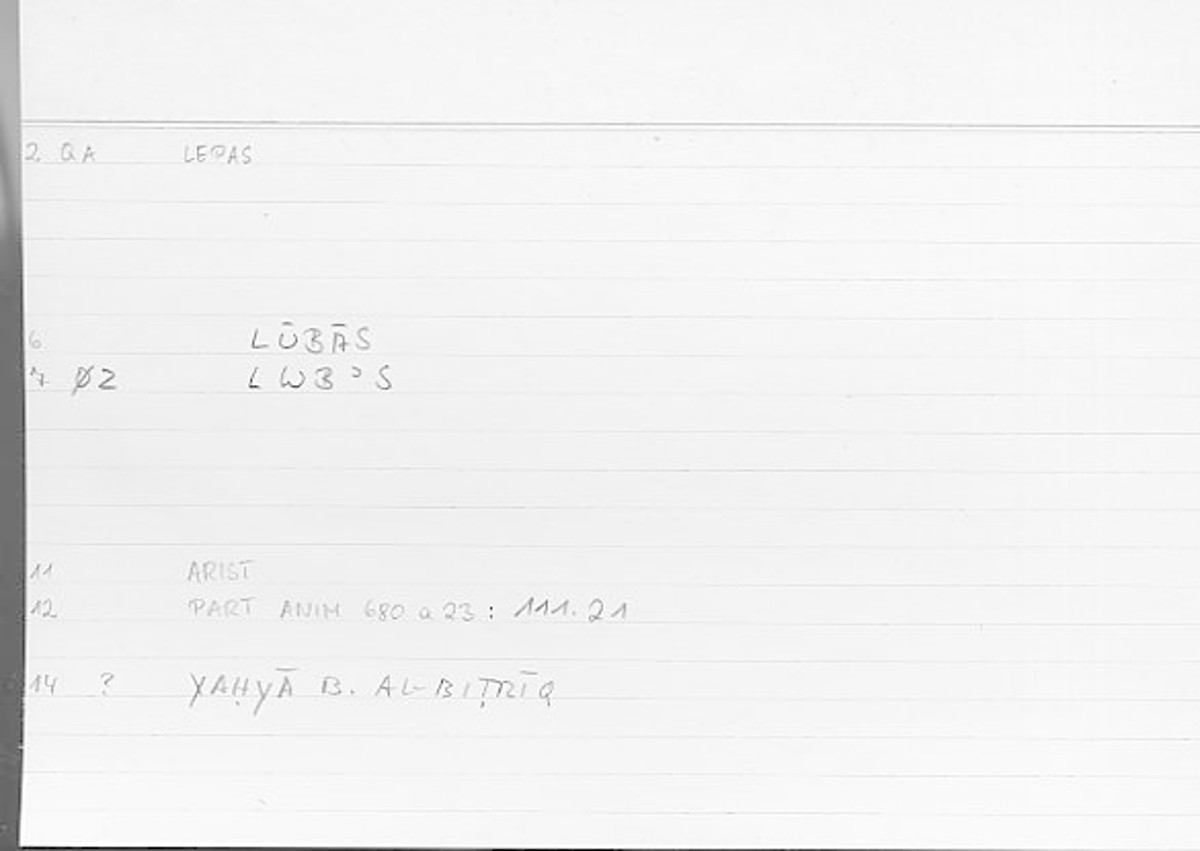 2 QA LEPAS
6 LŪBĀS
7 Ø2 LWBʾS
11 ARIST
12 PART ANIM 680 a 23 : 111.21
14 ? YAḤYĀ B. AL-BIṬRĪQ